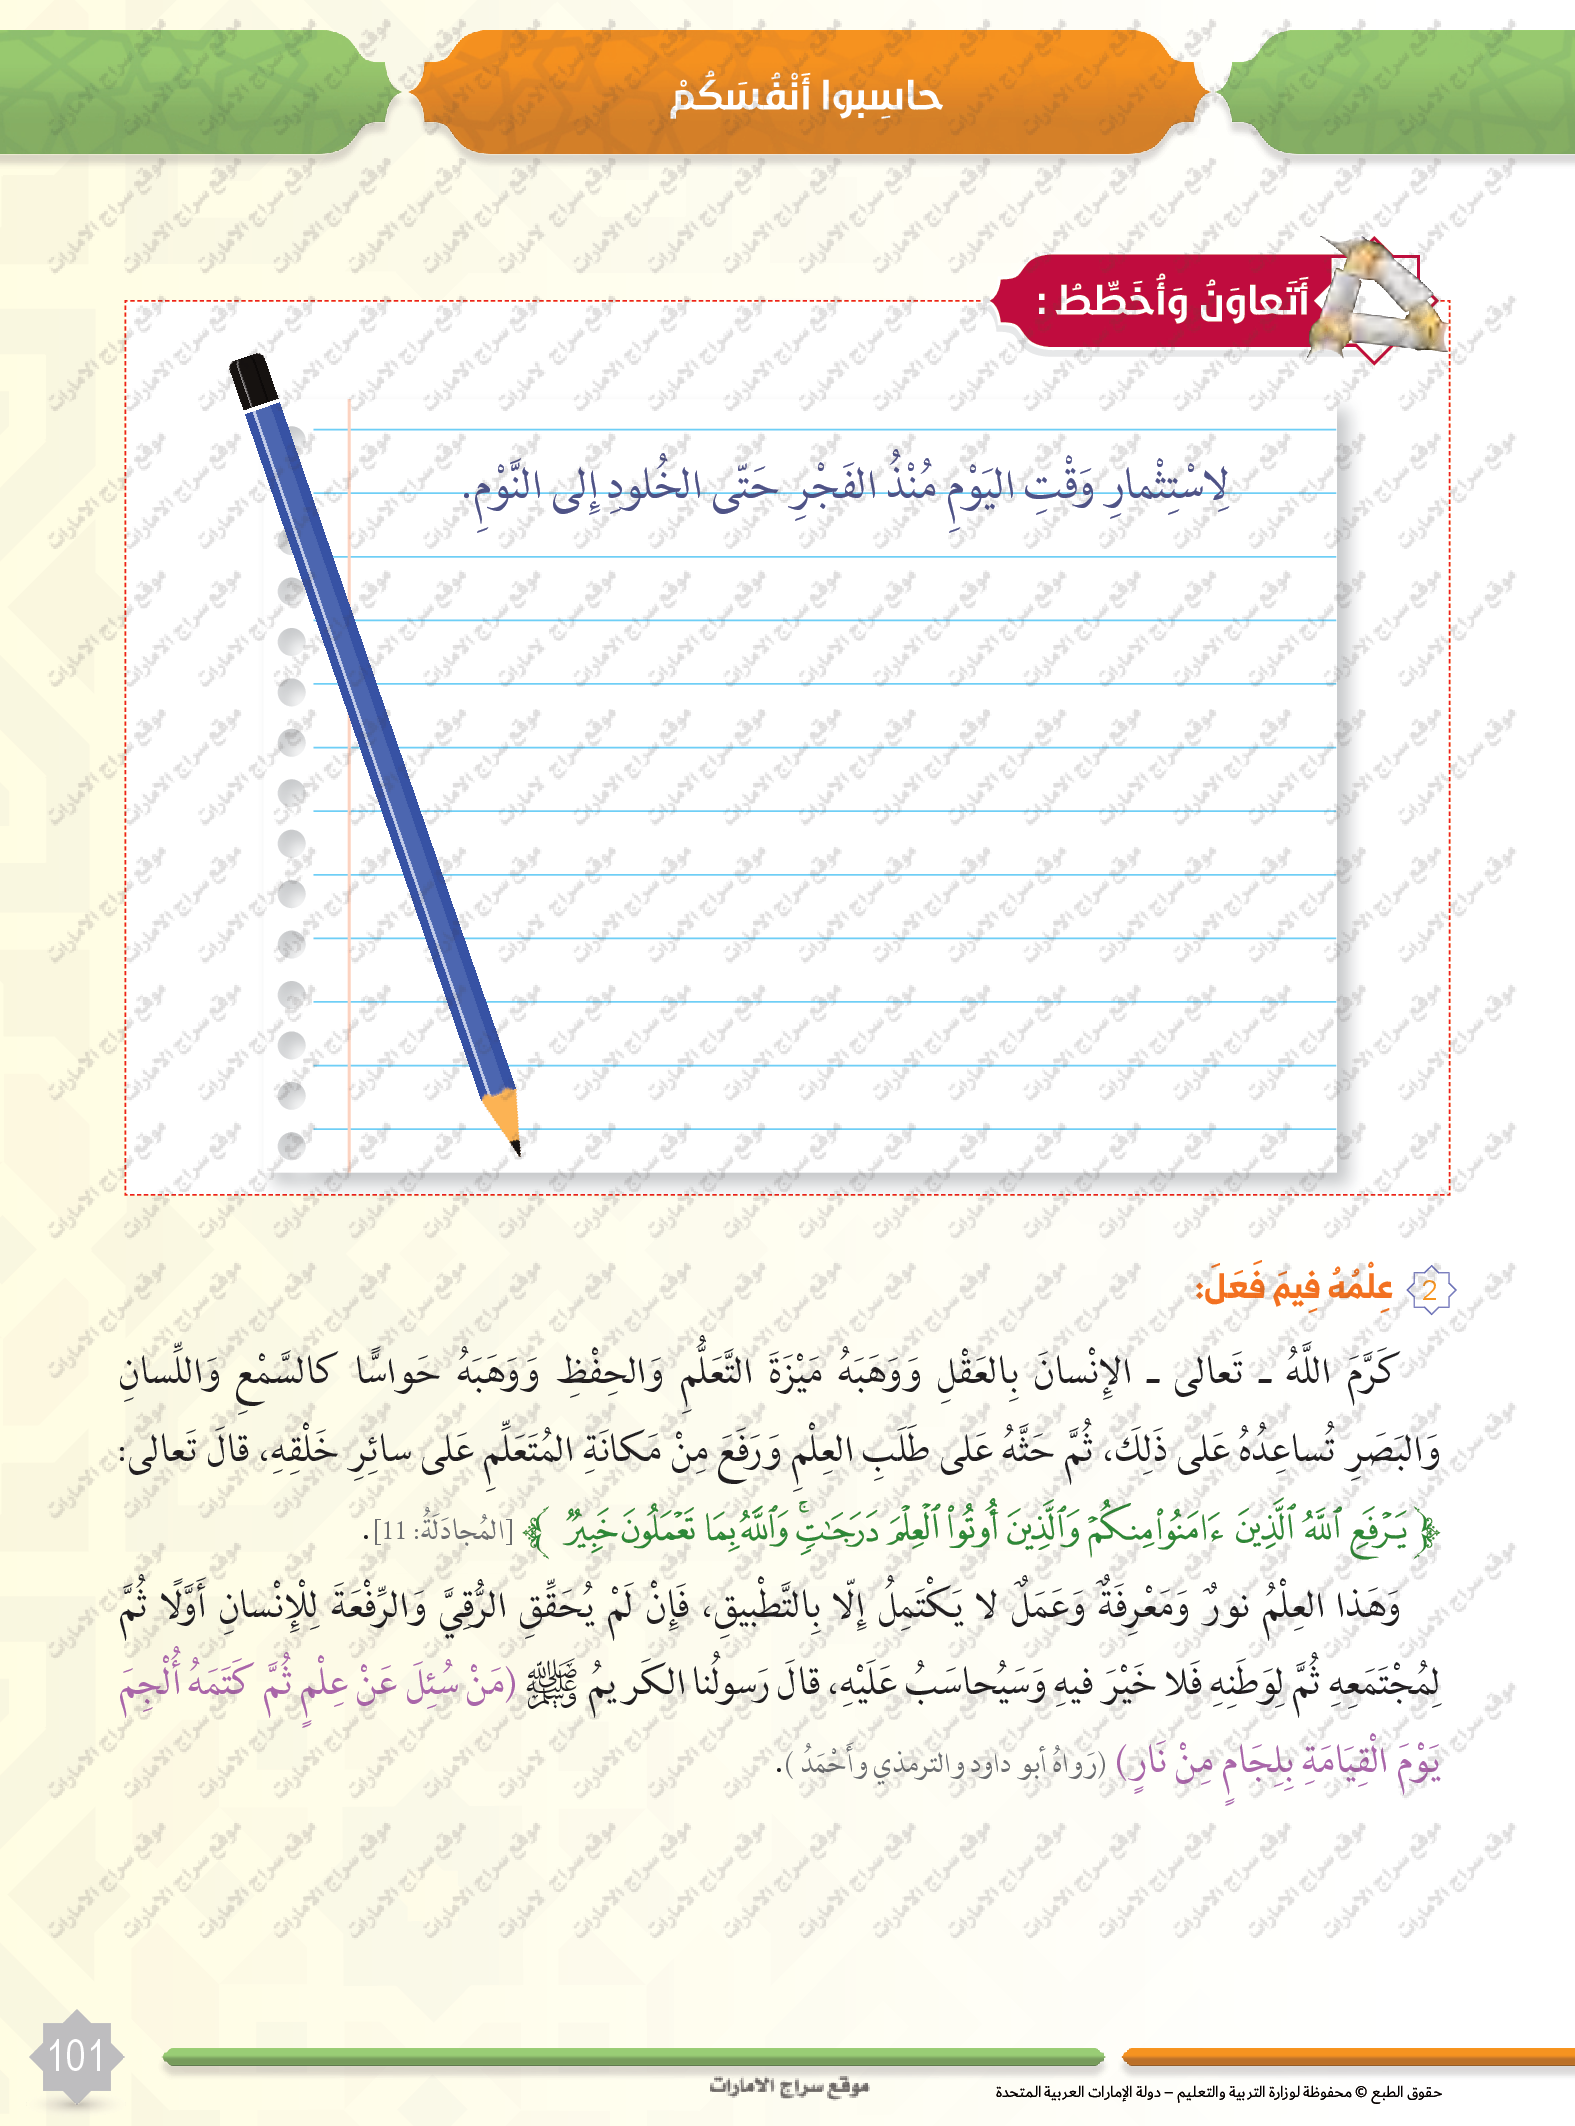 حاسِبوا أَنْفُسَكُمْ
أَتَعاوَنُ وَأُخَطِّطُ :
لِاسْتِثْمارِ وَقْتِ اليَوْمِ مُنْذُ الفَجْرِ حَتّى الخُلودِ إِلى النَّوْمِ.
2 عِلْمُهُ فِيمَ فَعَلَ:
كَرَّمَ اللَّهُ ـ تَعالى ـ الإِنْسانَ بِالعَقْلِ وَوَهَبَهُ مَيْزَةَ التَّعَلُّمِ وَالحِفْظِ وَوَهَبَهُ حَواسًّا كالسَّمْعِ وَاللِّسانِ
وَالبَصَرِ تُساعِدُهُ عَلى ذَلِكَ، ثُمَّ حَثَّهُ عَلى طَلَبِ العِلْمِ وَرَفَعَ مِنْ مَكانَةِ المُتَعَلِّمِ عَلى سائِرِ خَلْقِهِ، قالَ تَعالى:
﴿ يَرْفَعِ ٱللَّهُ ٱلَّذِينَ ءَامَنُوا۟ مِنكُمْ وَٱلَّذِينَ أُوتُوا۟ ٱلْعِلْمَ دَرَجَٰتٍ ۚ وَٱللَّهُ بِمَا تَعْمَلُونَ خَبِيرٌ ﴾ [المُجادَلَةُ: 11].
وَهَذا العِلْمُ نورٌ وَمَعْرِفَةٌ وَعَمَلٌ لا يَكْتَمِلُ إِلّا بِالتَّطْبيقِ، فَإِنْ لَمْ يُحَقِّقِ الرُّقِيَّ وَالرِّفْعَةَ لِلْإِنْسانِ أَوَّلًا ثُمَّ
لِمُجْتَمَعِهِ ثُمَّ لِوَطَنِهِ فَلا خَيْرَ فيهِ وَسَيُحاسَبُ عَلَيْهِ، قالَ رَسولُنا الكَريمُ ﷺ (مَنْ سُئِلَ عَنْ عِلْمٍ ثُمَّ كَتَمَهُ أُلْجِمَ
يَوْمَ الْقِيَامَةِ بِلِجَامٍ مِنْ نَارٍ) (رَواهُ أبو داود والترمذي وأَحْمَدُ ).
101
موقع سراج الامارات
حقوق الطبع © محفوظة لوزارة التربية والتعليم – دولة الإمارات العربية المتحدة